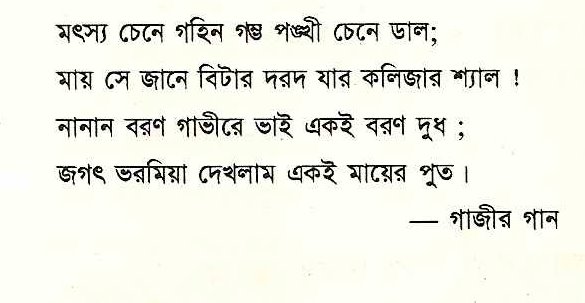 মৎস্য চেনে গহিন গম্ভ পঙ্খী চেনে ডাল;
মায় সে জানে বিটার দরদ যার কলিজার শ্যাল !
নানান বরণ গাভীরে ভাই একই বরণ দুধ ;
জগৎ ভরমিয়া দেখলাম একই মায়ের পুত ।
— গাজীর গান